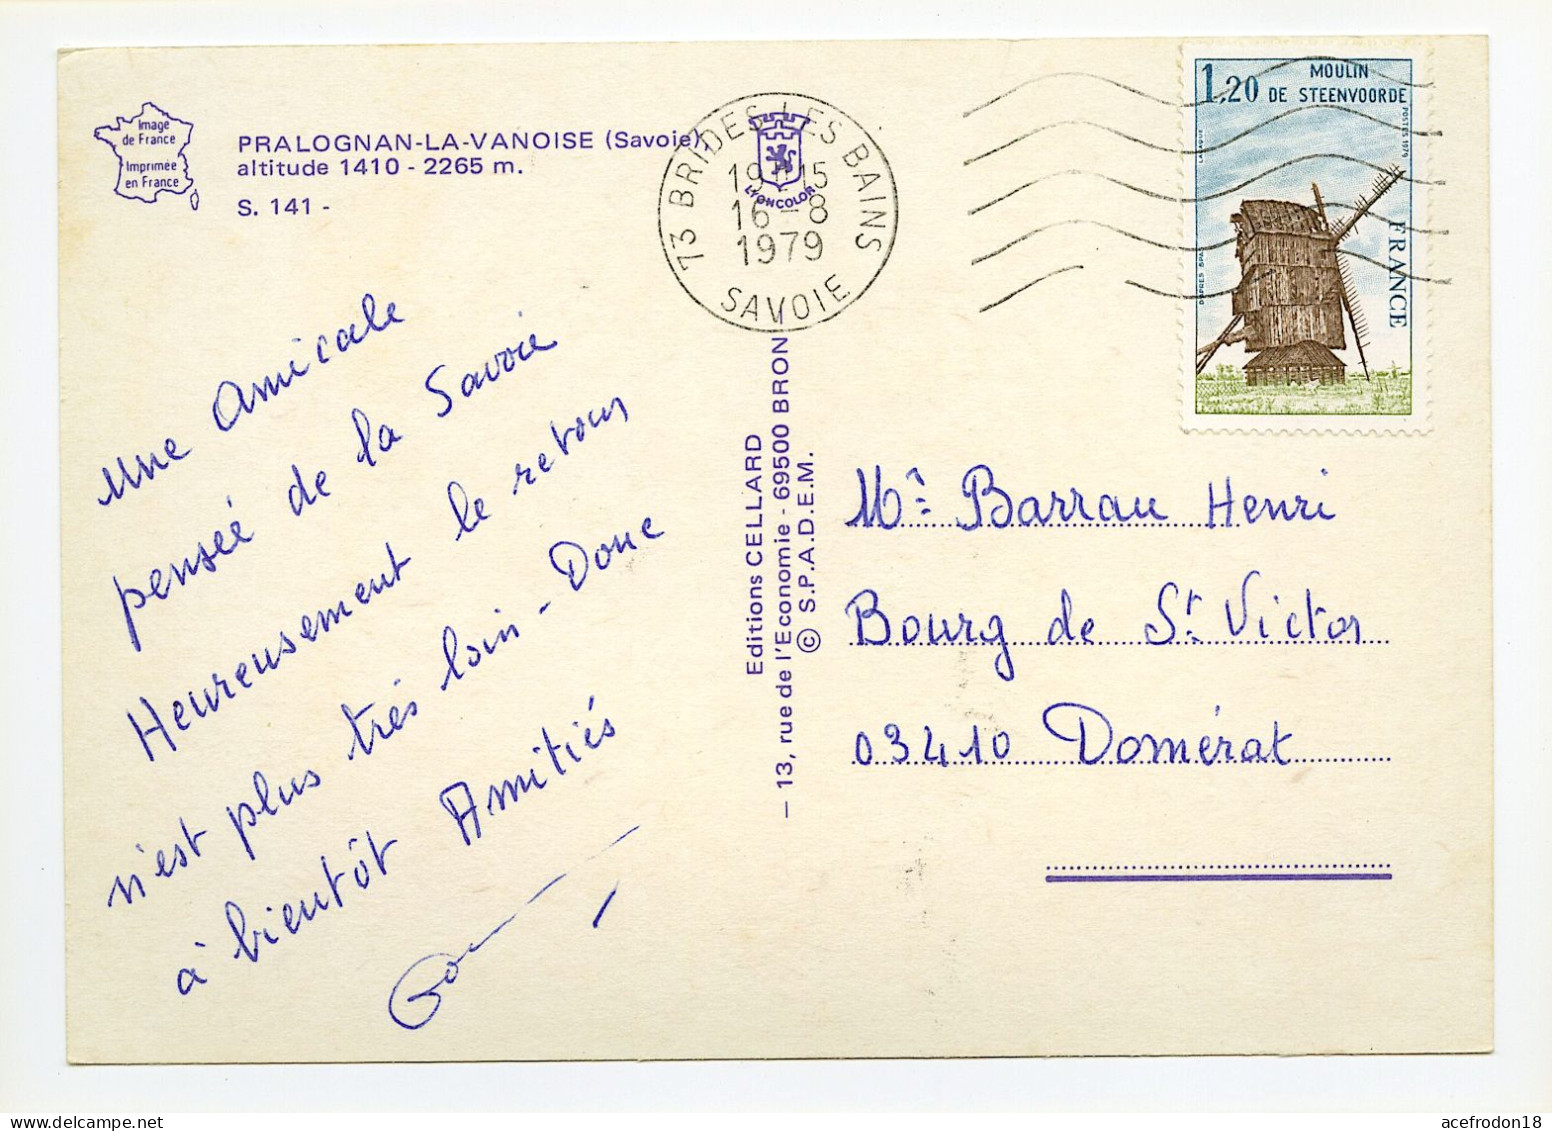 Image
de France
Imprimée
en France
PRALOGNAN-LA-VANOISE (Savoie)
altitude 1410 - 2265 m.
S. 141 -
Une Amicale
penseé de la Savoie
Heureusement le retour
n'est plus très loin - Donc
à bientôt Amitiés
73 BRIDES-LES-BAINS
19H15
16-8
1979
SAVOIE
LYONCOLOR
Editions CELLARD
- 13, rue de l'Economie - 69500 BRON
© S.P.A.D.E.M.
1,20
MOULIN
DE STEENVOORDE
POSTES 1979
FRANCE
Mr Barrau Henri
Bourg de St Victor
03410 Domérat
acefrodon18